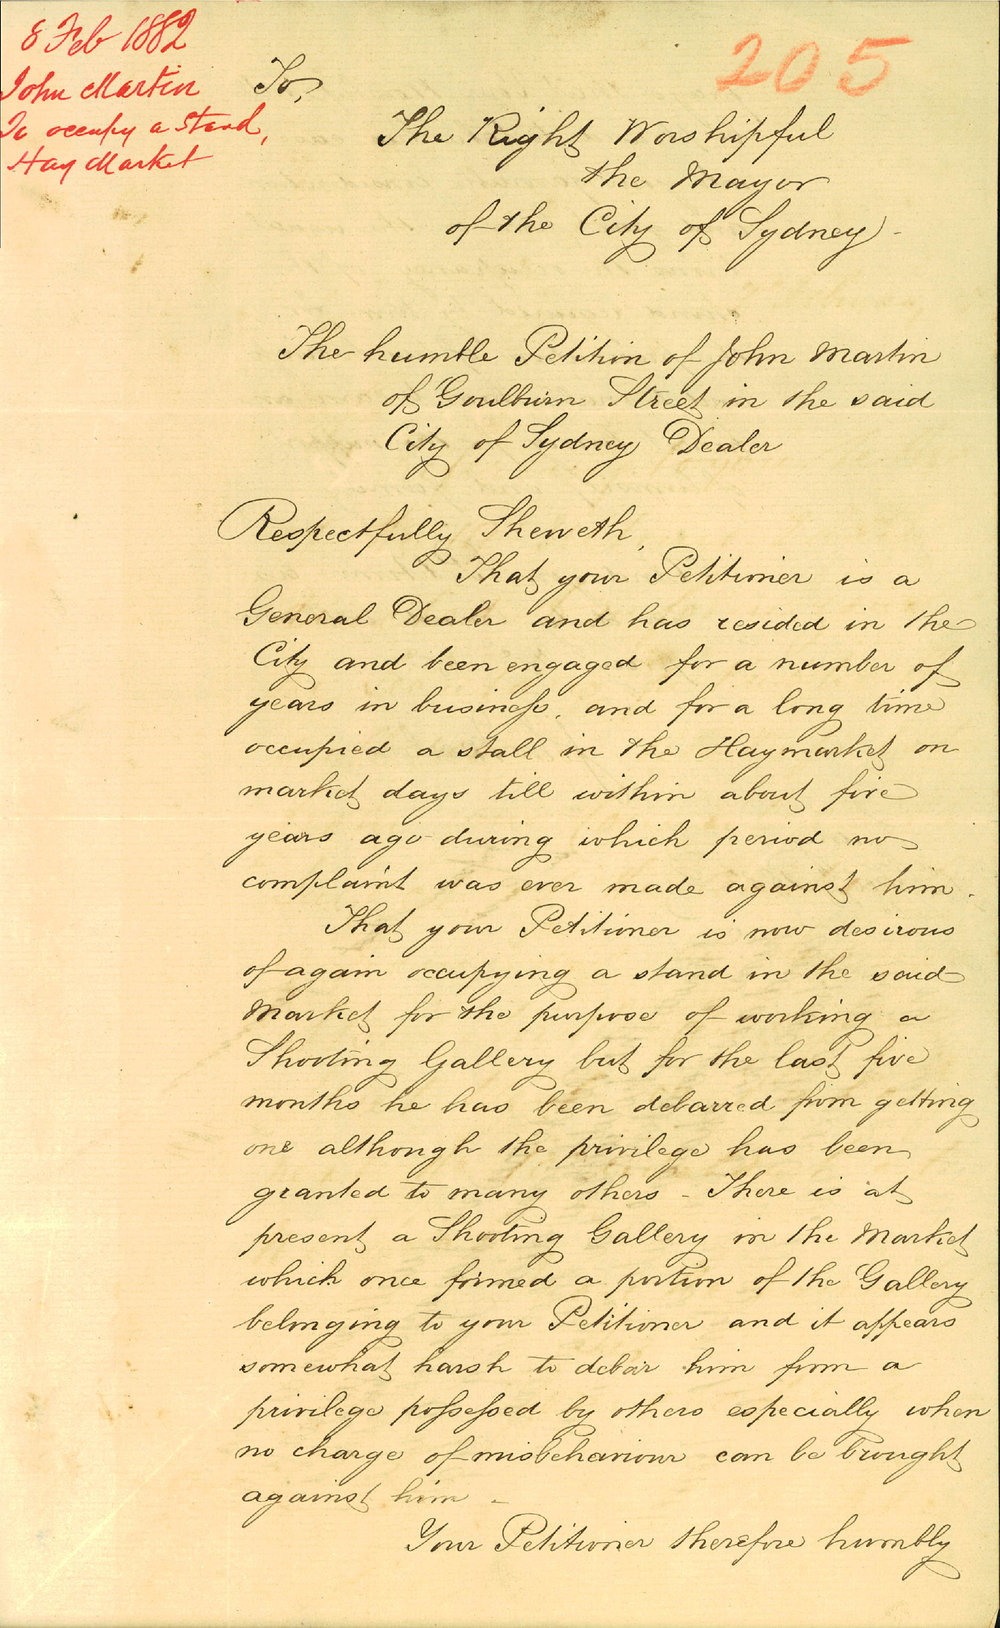 8 Feb 1882
John Martin
To occupy a stand,
Hay Market
205
To,
The Right Worshipful
the Mayor
of the City of Sydney -
The humble Petition of John Martin
of Goulburn Street in the said
City of Sydney Dealer
Respectfully Sheweth,
That your Petitioner is a
General Dealer and has resided in the
City and been engaged for a number of
years in business, and for a long time
occupied a stall in the Haymarket on
market days till within about five
years ago during which period no
complaint was ever made against him.
That your Petitioner is now desirous
of again occupying a stand in the said
Market for the purpose of working a
Shooting Gallery but for the last five
months he has been debarred from getting
one although the privilege has been
granted to many others - There is at
present a Shooting Gallery in the Market
which once formed a portion of the Gallery
belonging to your Petitioner and it appears
somewhat harsh to debar him from a
privilege possessed by others especially when
no charge of misbehaviour can be brought
against him -
Your Petitioner therefore humbly